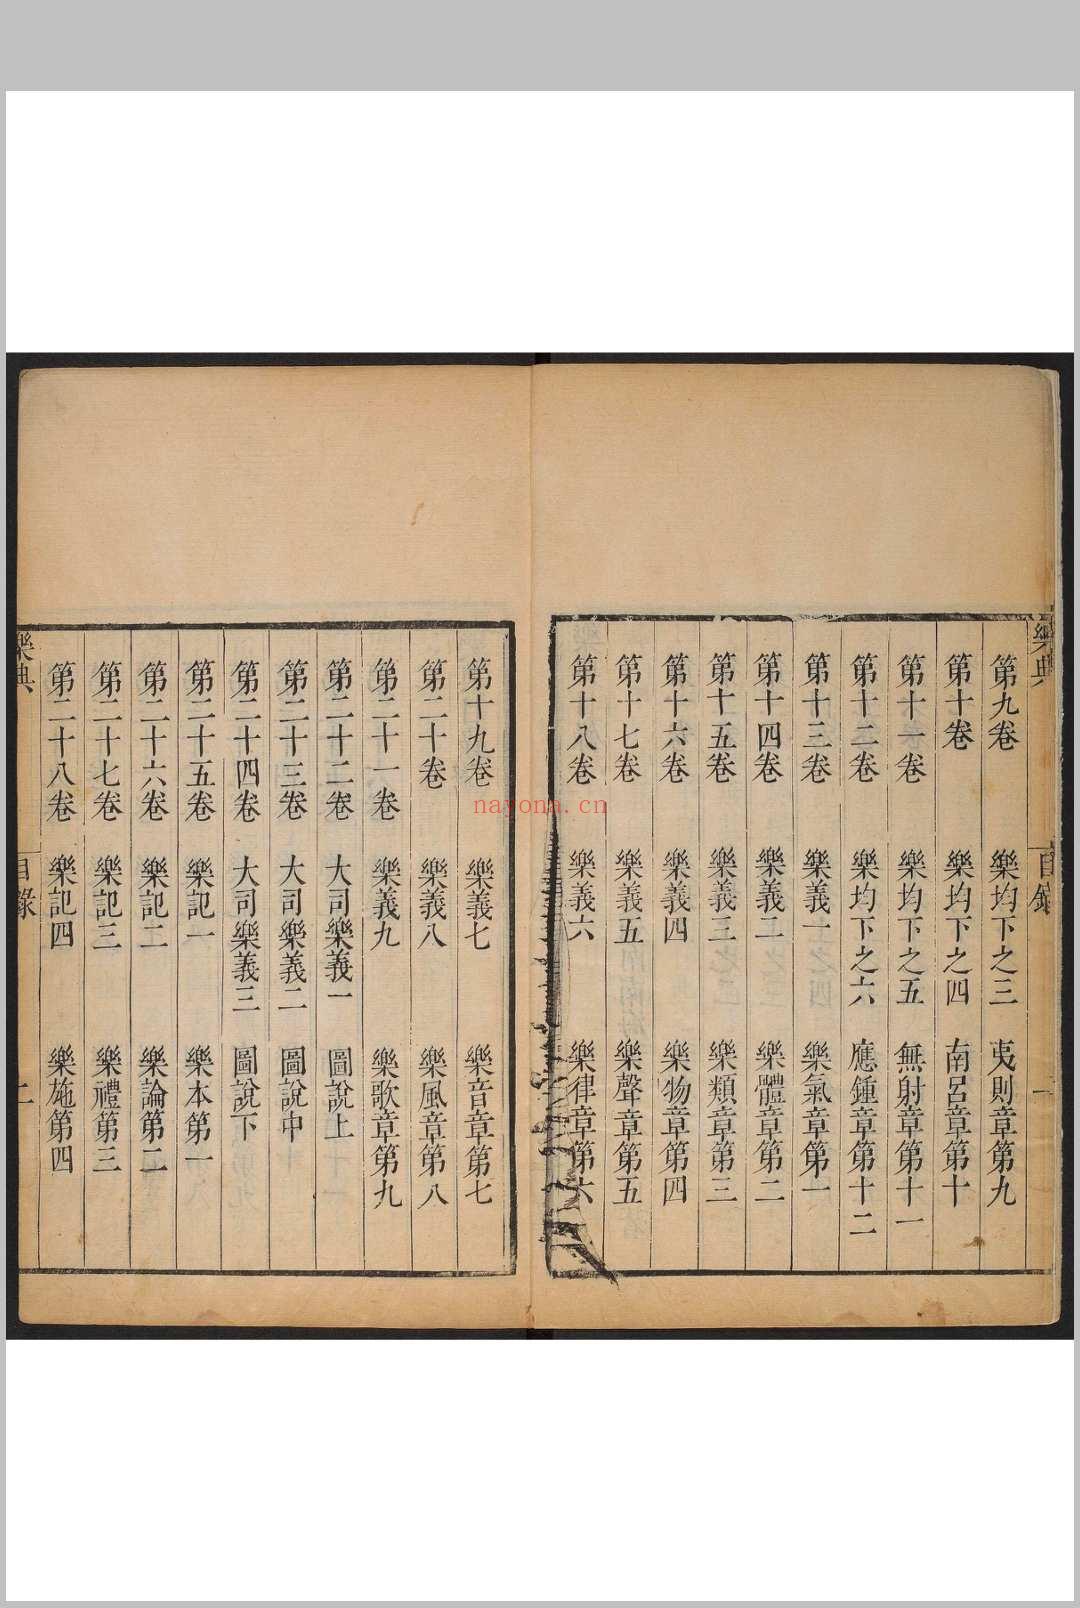 樂典 目錄 一
第九卷 樂均下之三 夷則章第九
第十卷 樂均下之四 南呂章第十
第十一卷 樂均下之五 無射章第十一
第十二卷 樂均下之六 應鍾章第十二
第十三卷 樂義一 樂氣章第一
第十四卷 樂義二 樂體章第二
第十五卷 樂義三 樂類章第三
第十六卷 樂義四 樂物章第四
第十七卷 樂義五 樂聲章第五
第十八卷 樂義六 樂律章第六
第十九卷 樂義七 樂音章第七
第二十卷 樂義八 樂風章第八
第二十一卷 樂義九 樂歌章第九
第二十二卷 大司樂義一 圖說上
第二十三卷 大司樂義二 圖說中
第二十四卷 大司樂義三 圖說下
第二十五卷 樂記一 樂本第一
第二十六卷 樂記二 樂論第二
第二十七卷 樂記三 樂禮第三
第二十八卷 樂記四 樂施第四
樂典 目錄 二
nayona.cn